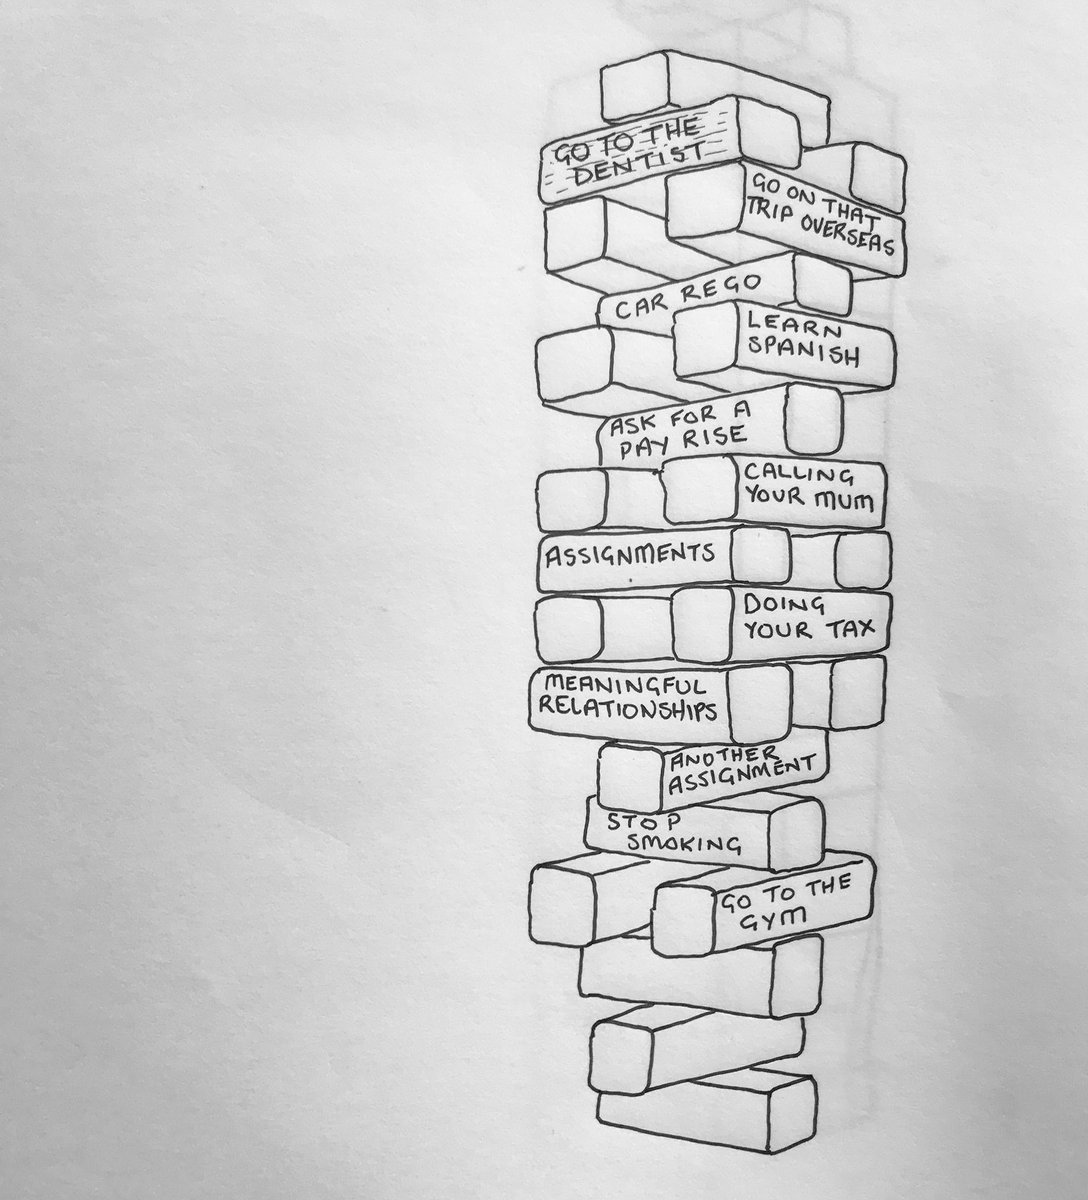 GO TO THE
DENTIST
GO ON THAT
TRIP OVERSEAS
CAR REGO
LEARN
SPANISH
ASK FOR A
PAY RISE
CALLING
YOUR MUM
ASSIGNMENTS
DOING
YOUR TAX
MEANINGFUL
RELATIONSHIPS
ANOTHER
ASSIGNMENT
STOP
SMOKING
GO TO THE
GYM